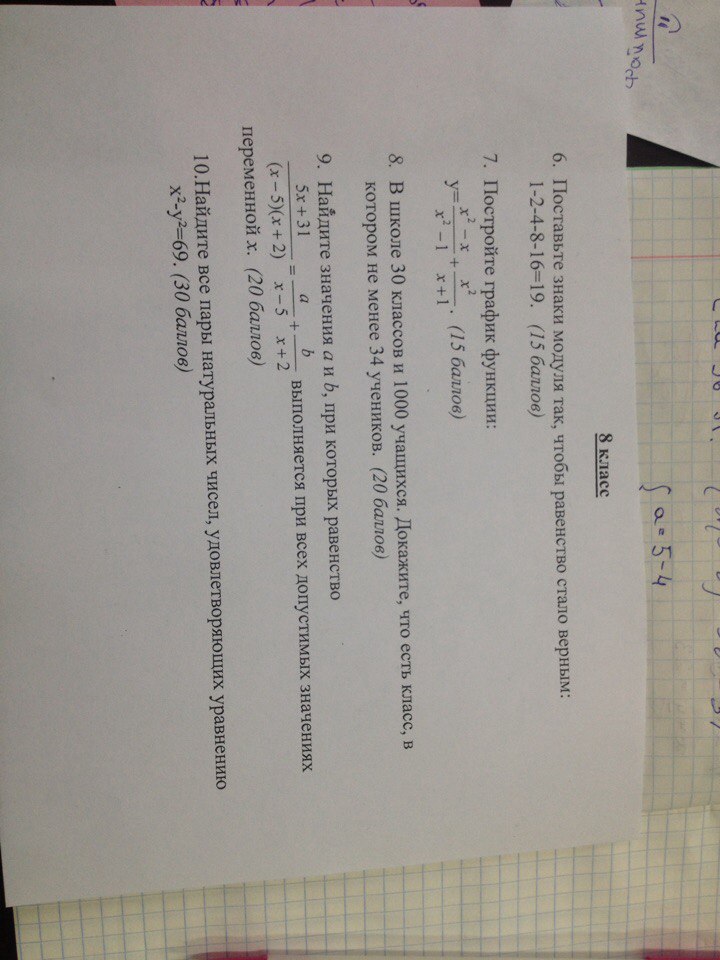 8 класс
6. Поставьте знаки модуля так, чтобы равенство стало верным:
1-2-4-8-16=19. (15 баллов)
7. Постройте график функции:
y= (x² − x)/(x² − 1) + x²/(x + 1). (15 баллов)
8. В школе 30 классов и 1000 учащихся. Докажите, что есть класс, в
котором не менее 34 учеников. (20 баллов)
9. Найдите значения a и b, при которых равенство
(5x + 31)/((x − 5)(x + 2)) = a/(x − 5) + b/(x + 2) выполняется при всех допустимых значениях
переменной x. (20 баллов)
10.Найдите все пары натуральных чисел, удовлетворяющих уравнению
x²-y²=69. (30 баллов)
{ a = 5-4